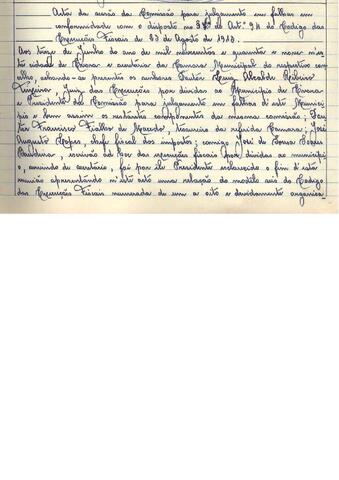 Acta da sessão da Comissão para julgamento em falhas em
conformidade com o disposto no Art.º 94 do Codigo das
Execuções Fiscais de 23 de Agosto de 1913.
Aos treze de Junho do ano de mil novecentos e quarenta e nove n'es
ta cidade de e secretaria da Camara Municipal do respectivo con
celho, achando-se presentes os senhores Doutor Alcaide Ribeiro
Juiz das Execuções por dividas ao Municipio de
e Presidente da Comissão para julgamento em falhas d'este Munici
pio e bem assim os restantes componentes da mesma comissão;
Francisco Fialho de Macedo, tesoureiro da referida Camara; José
Augusto Lopes, chefe fiscal dos impostos; comigo José de Sousa Soares
escrivão das execuções fiscais por dividas ao municipi
o, servindo de secretario, foi por ele Presidente esclarecido o fim d'esta
reunião apresentando n'este acto uma relação do modelo seis do Codigo
das Execuções Fiscais numerada de um a oito e devidamente organisa